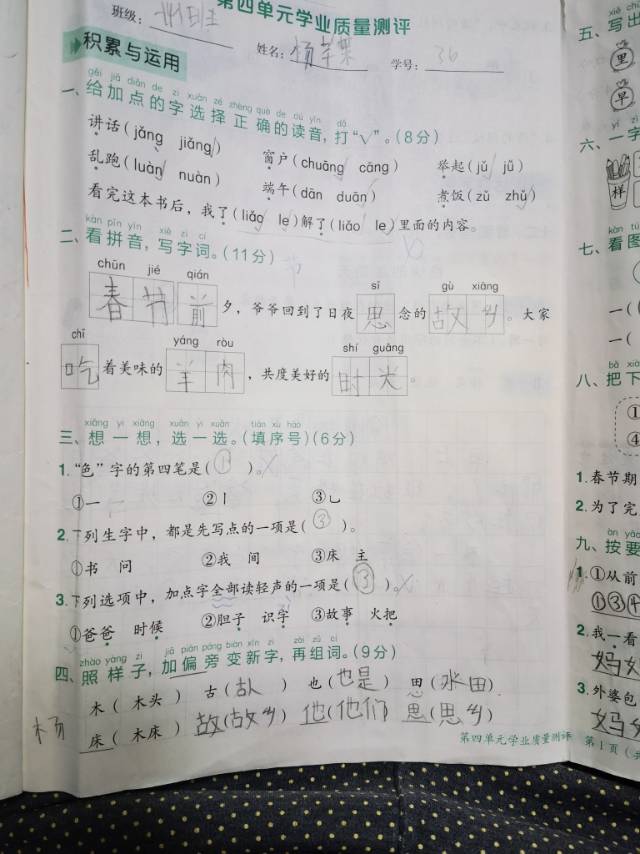 第四单元学业质量测评
班级:
姓名: 学号: 36
积累与运用
gěi jiā diǎn de zì xuǎn zé zhèng què de dú yīn dǎ
一、给加点的字选择正确的读音,打“√”。(8分)
讲话(jǎng jiǎng√) 窗户(chuāng√ cāng) 举起(jǔ√ jǔ)
乱跑(luàn√ nuàn) 端午(dān duān√) 煮饭(zǔ zhǔ√)
看完这本书后,我了(liǎo le√)解了(liǎo le√)里面的内容。
kàn pīn yīn xiě zì cí
二、看拼音,写字词。(11分)
chūn jié qián sī gù xiāng
春节前夕,爷爷回到了日夜思念的故乡。大家
chī yáng ròu shí guāng
吃着美味的羊肉,共度美好的时光。
xiǎng yi xiǎng xuǎn yi xuǎn tián xù hào
三、想一想,选一选。(填序号)(6分)
1.“色”字的第四笔是(①)。
①一 ②丨 ③乚
2.下列生字中,都是先写点的一项是(③)。
①书 问 ②我 间 ③床 主
3.下列选项中,加点字全部读轻声的一项是(③)。
①爸爸 时候 ②胆子 识字 ③故事 火把
zhào yàng zi jiā piān páng biàn xīn zì zài zǔ cí
四、照样子,加偏旁变新字,再组词。(9分)
木(木头) 古() 也(也是) 田(水田)
床(木床) 故(故乡) 他(他们) 思(思乡)
杨
第四单元学业质量测评 第1页(共
五、写出
里
早
六、一字
样
七、看图
一(
一(
八、把下
①
④
1.春节期
2.为了完
九、按要
1.①从前
①③④
2.我一看
妈女
3.外婆包